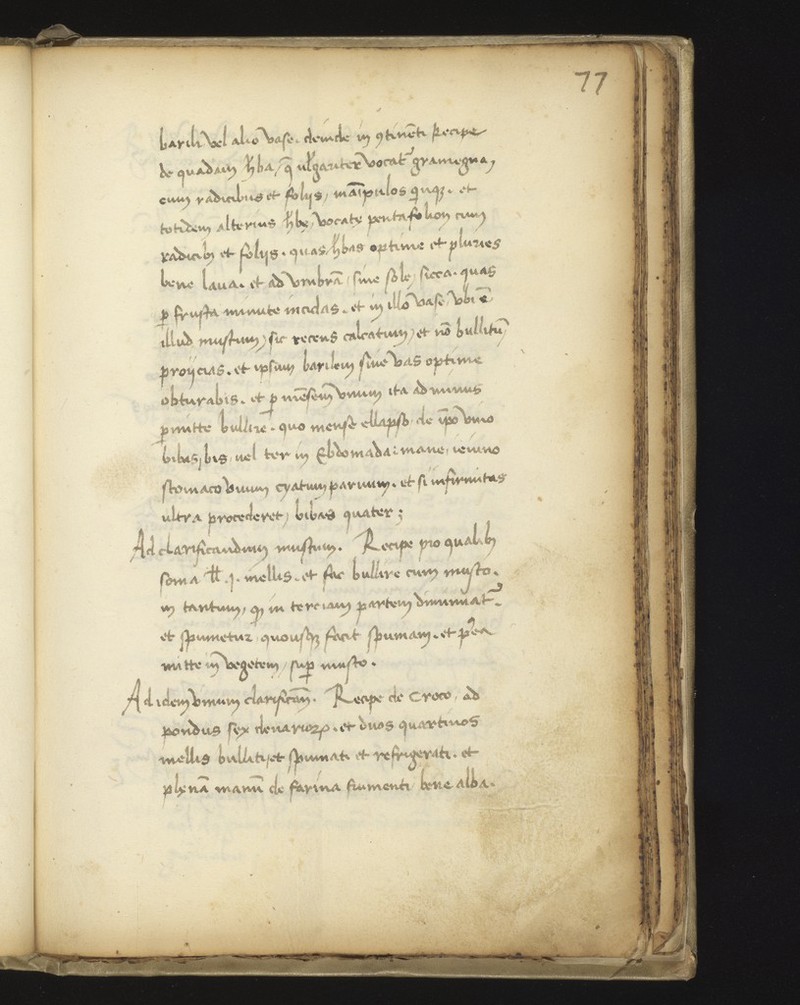 77
barili vel alio vase. deinde in ꝯtinēti Recipe
de quadam hꝰba, q̄ vlgariter vocat᷑ gramegna,
cum radicibus et folijs, māipulos quinqꝫ. et
totidem alterius hꝰbę, vocatę pentafolion cum
radicibꝫ et folijs. quas hꝰbas optime et pluries
bene laua. et ad vmbrā, sine sole, sicca. quas
ꝑ frusta minute incidas. et in illo vase, vbi ē
illud mustum, sic recens calcatum, et nō bullitū,
proijcias. et ipsum barilem siue vas optime
obturabis. et ꝑ mēsem vnum ita ad minus
ꝑmitte bullire. quo mense ellapso de ip̄o vino
bibas, bis vel ter in Ebdomada: mane, ieiuno
stomaco vnum cyatum paruum. et si infirmitas
ultra procederet, bibas quater;
Ad clarificandum mustum. Recipe pro qualibꝫ
soma ℔ .j. mellis. et fac bullire cum musto.
in tantum, ꝙ in terciam partem diminuat᷑.
et spumetur quousqꝫ facit spumam. et p̄ea
mitte in vegetem, suꝑ musto.
Ad idem vinum clarificām. Recipe de Croco, ad
pondus sex denarioꝝ. et duos quartinos
mellis bulliti, et spumati et refrigerati. et
plenā manū de farina frumenti bene alba.